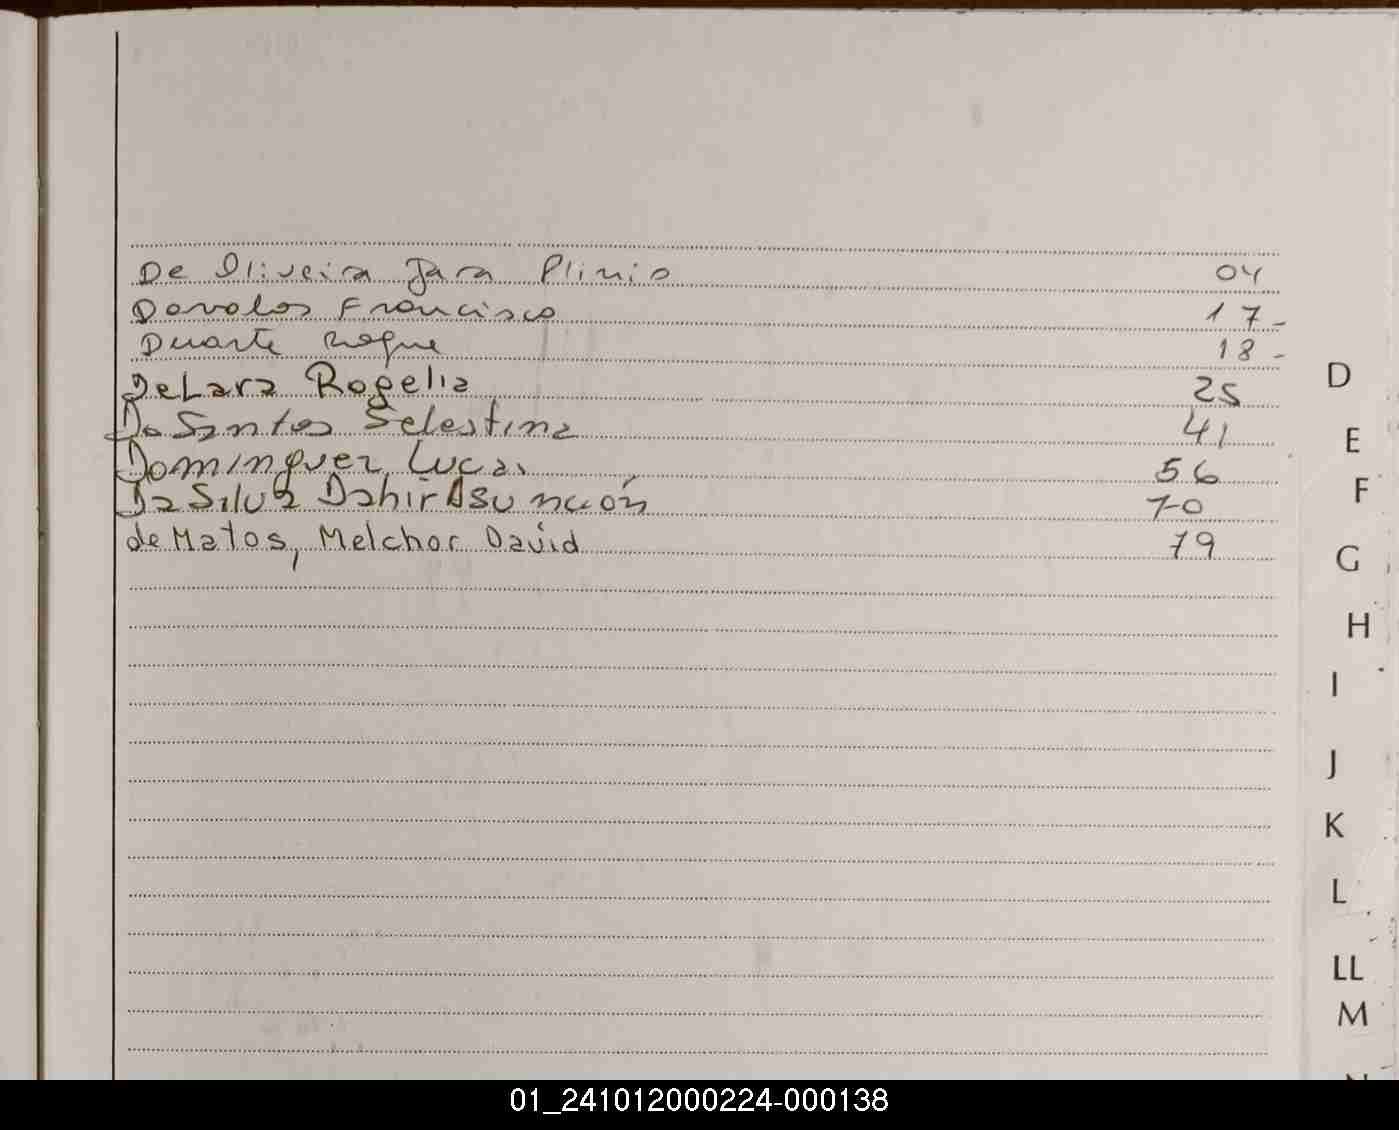 De Oliveira Jara Plinio 04
Davalos Francisco 17-
Duarte Roque 18-
DeLara Rogelia 25
Da Santos Selestina 41
Dominguez Lucas 56
Da Silva Dahir Asunción 70
de Matos, Melchor David 79
D
E
F
G
H
I
J
K
L
LL
M
01_241012000224-000138